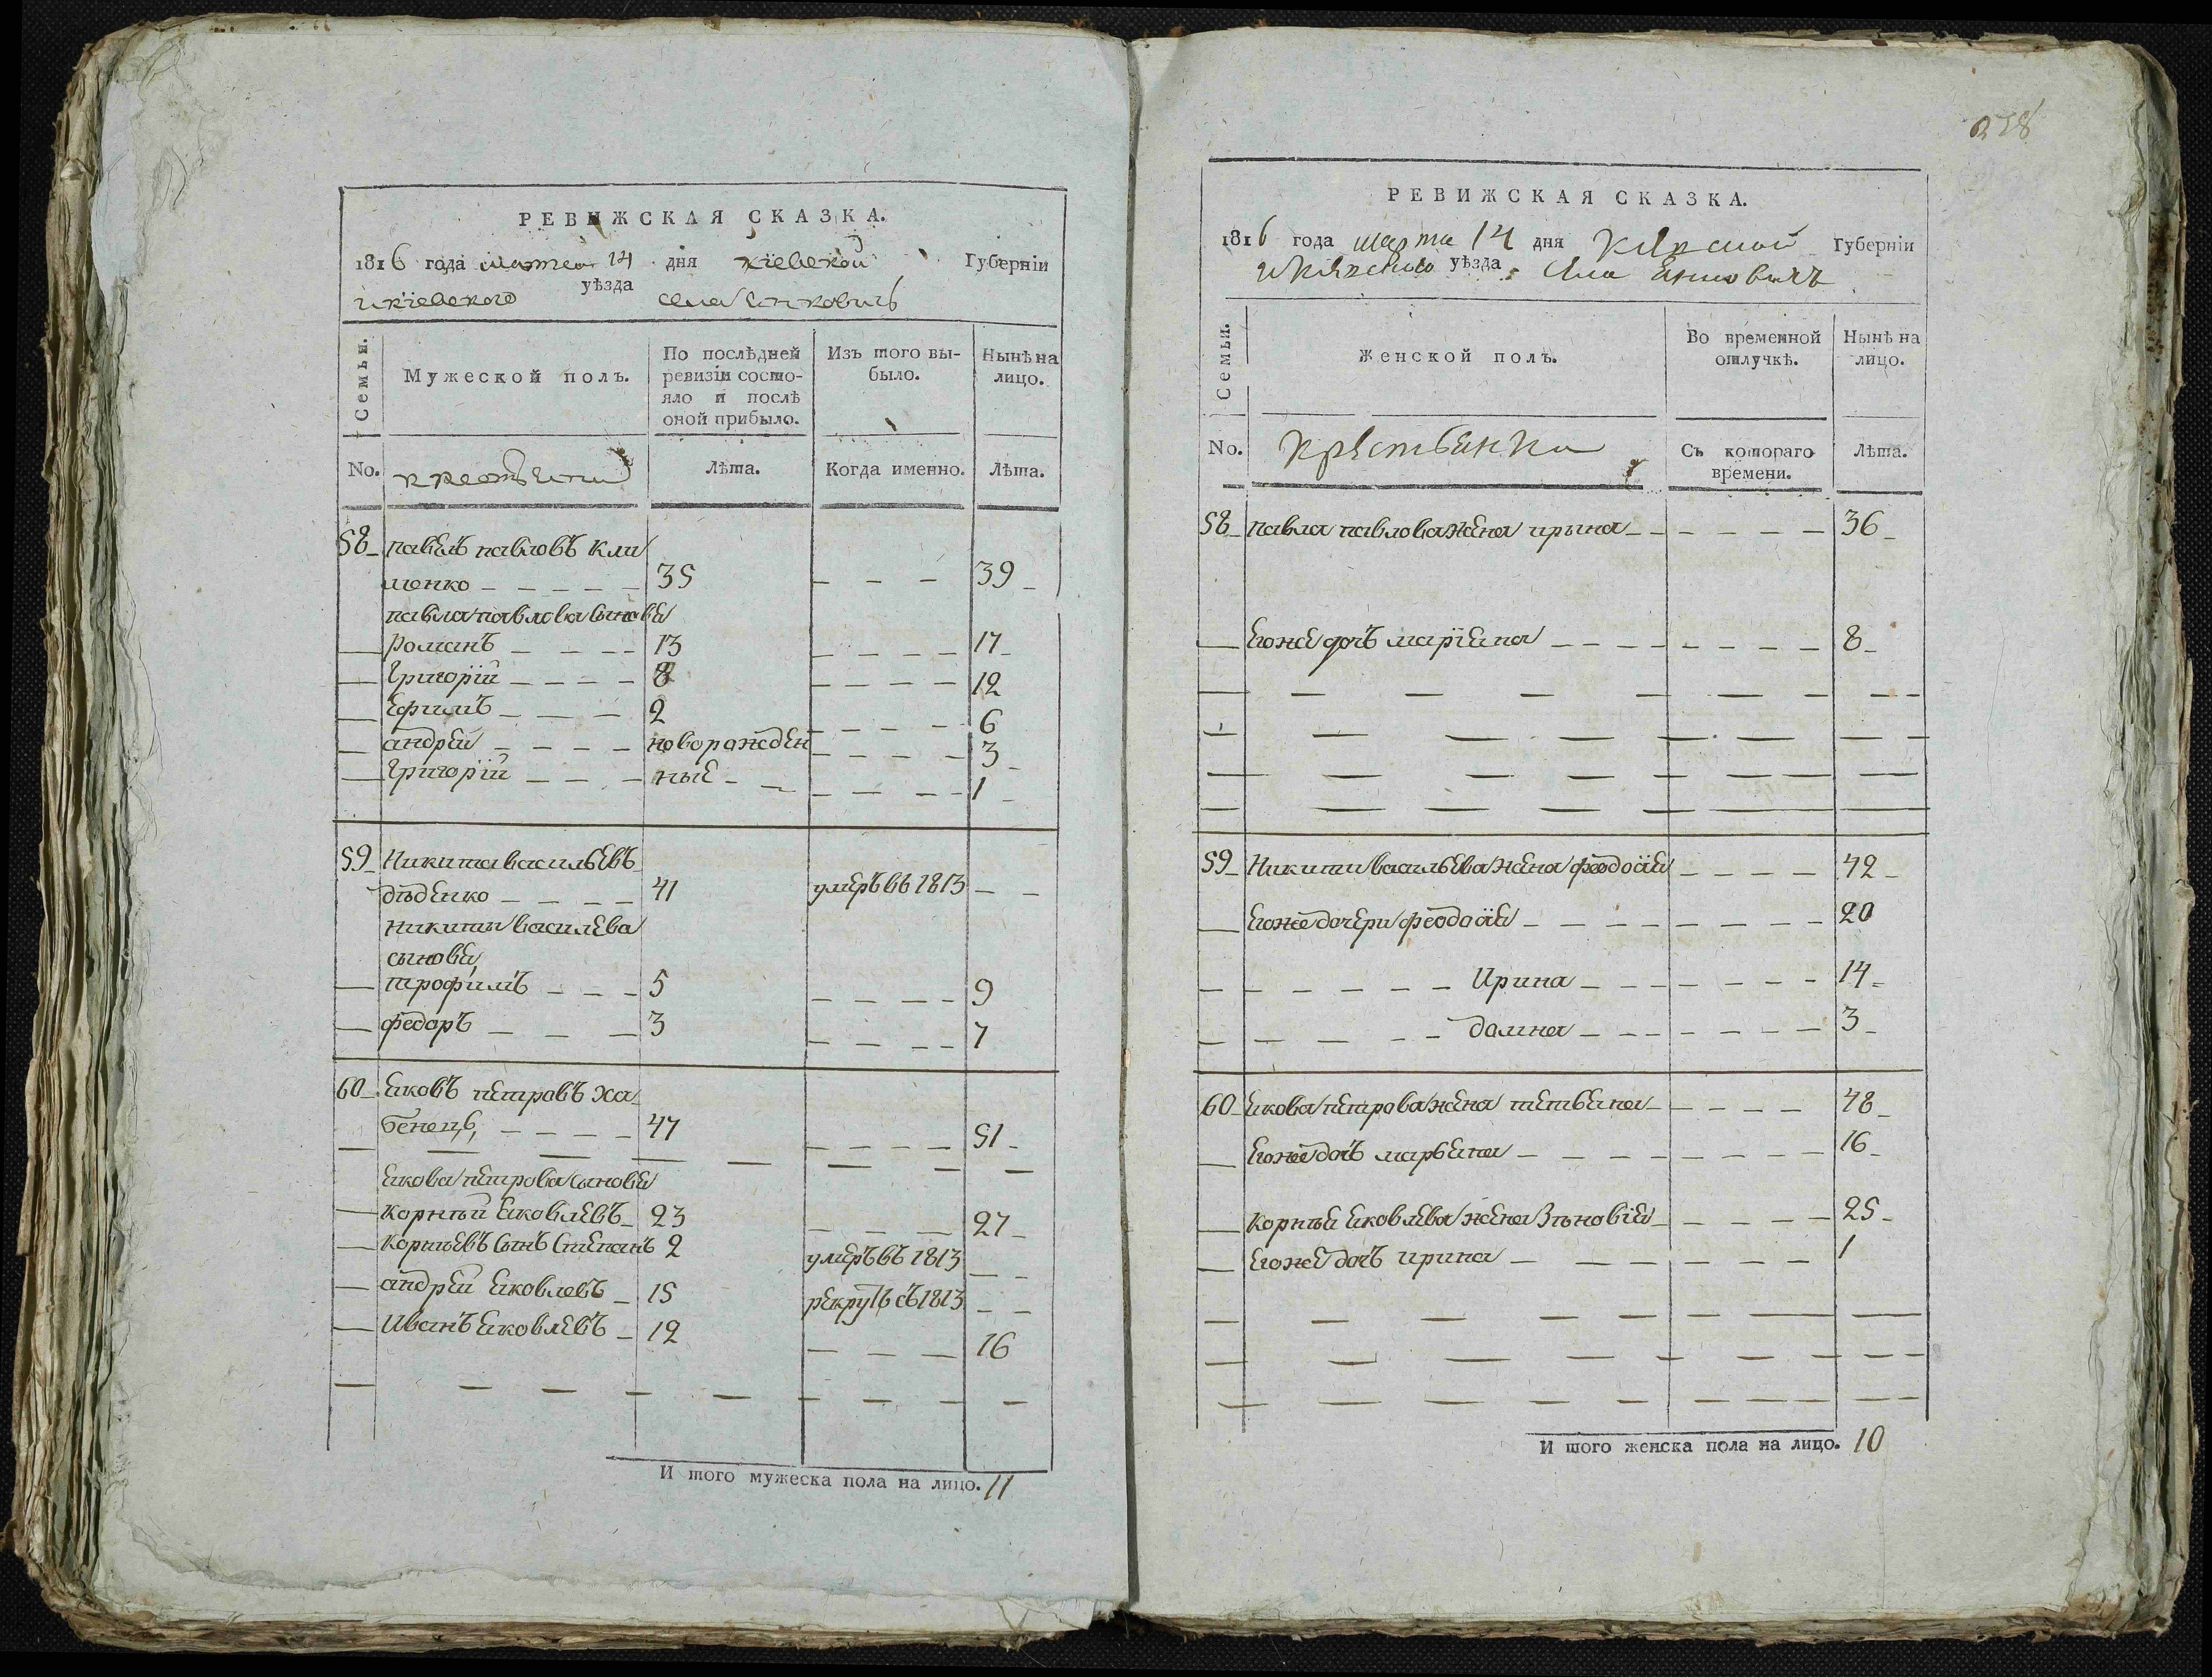 РЕВИЖСКАЯ СКАЗКА.
1816 года марта 14 дня кіевской Губерніи
икіевского уѣзда села янковичъ
Семьи. Мужеской полъ. По послѣдней ревизіи состояло и послѣ оной прибыло. Изъ того выбыло. Нынѣ на лицо.
No. крестьяни Лѣта. Когда именно. Лѣта.
58 павелъ павловъ кли
менко 35 39
павла павлова сыновя
Романъ 13 17
Григорій 8 12
Ефимъ 2 6
андрей новорожден 3
Григорій ные 1
59 Никита васильевъ
дѣденко 41 умеръ въ 1813
никиты василева
сыновя
трофимъ 5 9
федоръ 3 7
60 яковъ петровъ ха
бенецъ 47 51
якова петрова сыновя
корнѣй яковлевъ 23 27
корнѣевъ сынъ степанъ 2 умеръ въ 1813
андрей яковлевъ 15 рекрутъ съ 1813
Иванъ яковлевъ 12 16
И того мужеска пола на лицо. 11
278
РЕВИЖСКАЯ СКАЗКА.
1816 года марта 14 дня Губерніи
уѣзда
Семьи. Женской полъ. Во временной отлучкѣ. Нынѣ на лицо.
No. крестьянки Съ котораго времени. Лѣта.
58 павла павлова жена ирына 36
Егоже дочъ маріяна 8
59 Никиты васильева жена феодосія 42
Егоже дочери феодосія 20
Ирина 14
домна 3
60 якова петрова жена тетьяна 48
Егоже дочъ марьяна 16
корнѣя яковлева жена Зѣновія 25
Егоже дочъ ирина 1
И того женска пола на лицо. 10